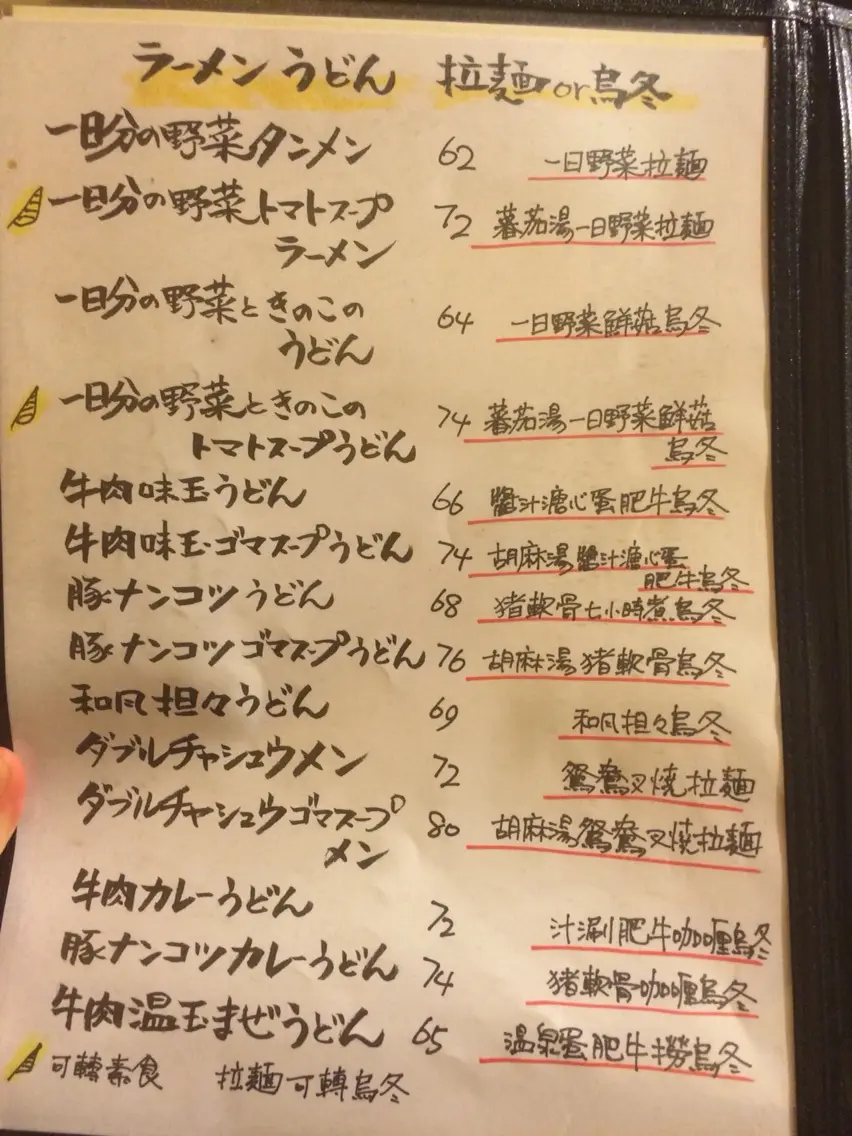 ラーメン うどん 拉麵 or 烏冬
一日分の野菜タンメン 62 一日野菜拉麵
一日分の野菜トマトスープ 72 蕃茄湯一日野菜拉麵
ラーメン
一日分の野菜ときのこの 64 一日野菜鮮菇烏冬
うどん
一日分の野菜ときのこの 74 蕃茄湯一日野菜鮮菇
トマトスープうどん 烏冬
牛肉味玉うどん 66 醬汁溏心蛋肥牛烏冬
牛肉味玉ゴマスープうどん 74 胡麻湯醬汁溏心蛋
肥牛烏冬
豚ナンコツうどん 68 猪軟骨七小時煮烏冬
豚ナンコツゴマスープうどん 76 胡麻湯猪軟骨烏冬
和風担々うどん 69 和風担々烏冬
ダブルチャシュウメン 72 鴛鴦叉燒拉麵
ダブルチャシュウゴマスープ 80 胡麻湯鴛鴦叉燒拉麵
メン
牛肉カレーうどん 72 汁涮肥牛咖喱烏冬
豚ナンコツカレーうどん 74 猪軟骨咖喱烏冬
牛肉温玉まぜうどん 65 温泉蛋肥牛撈烏冬
可轉素食 拉麵可轉烏冬